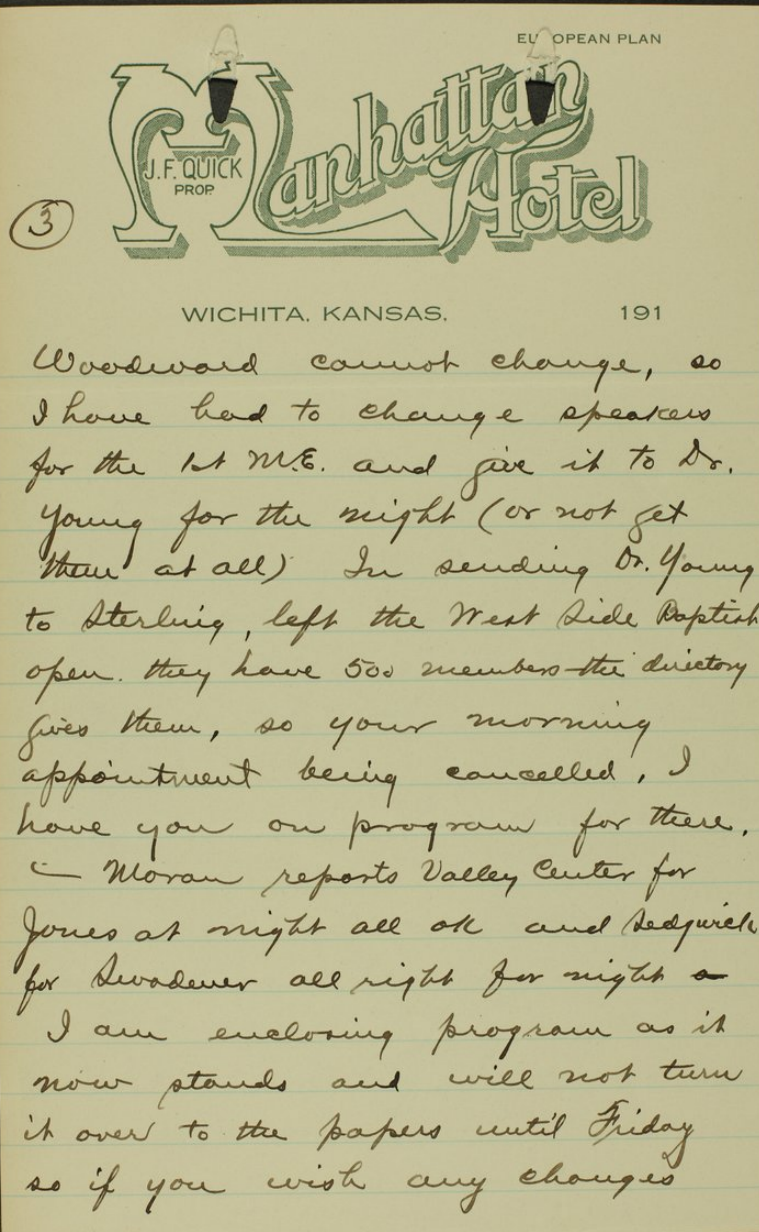 EUROPEAN PLAN
Manhattan Hotel
J.F. QUICK
PROP.
3
WICHITA, KANSAS. 191
Woodward cannot change, so
I have had to change speakers
for the 1st M.E. and give it to Dr.
Young for the night (or not get
them at all) In sending Dr. Young
to Sterling, left the West Side Baptist
open. they have 500 members - the directory
gives them, so your morning
appointment being cancelled, I
have you on program for there.
Moran reports Valley Center for
Jones at night all ok and Sedgwick
for Swadener all right for night
I am enclosing program as it
now stands and will not turn
it over to the papers until Friday
so if you wish any changes